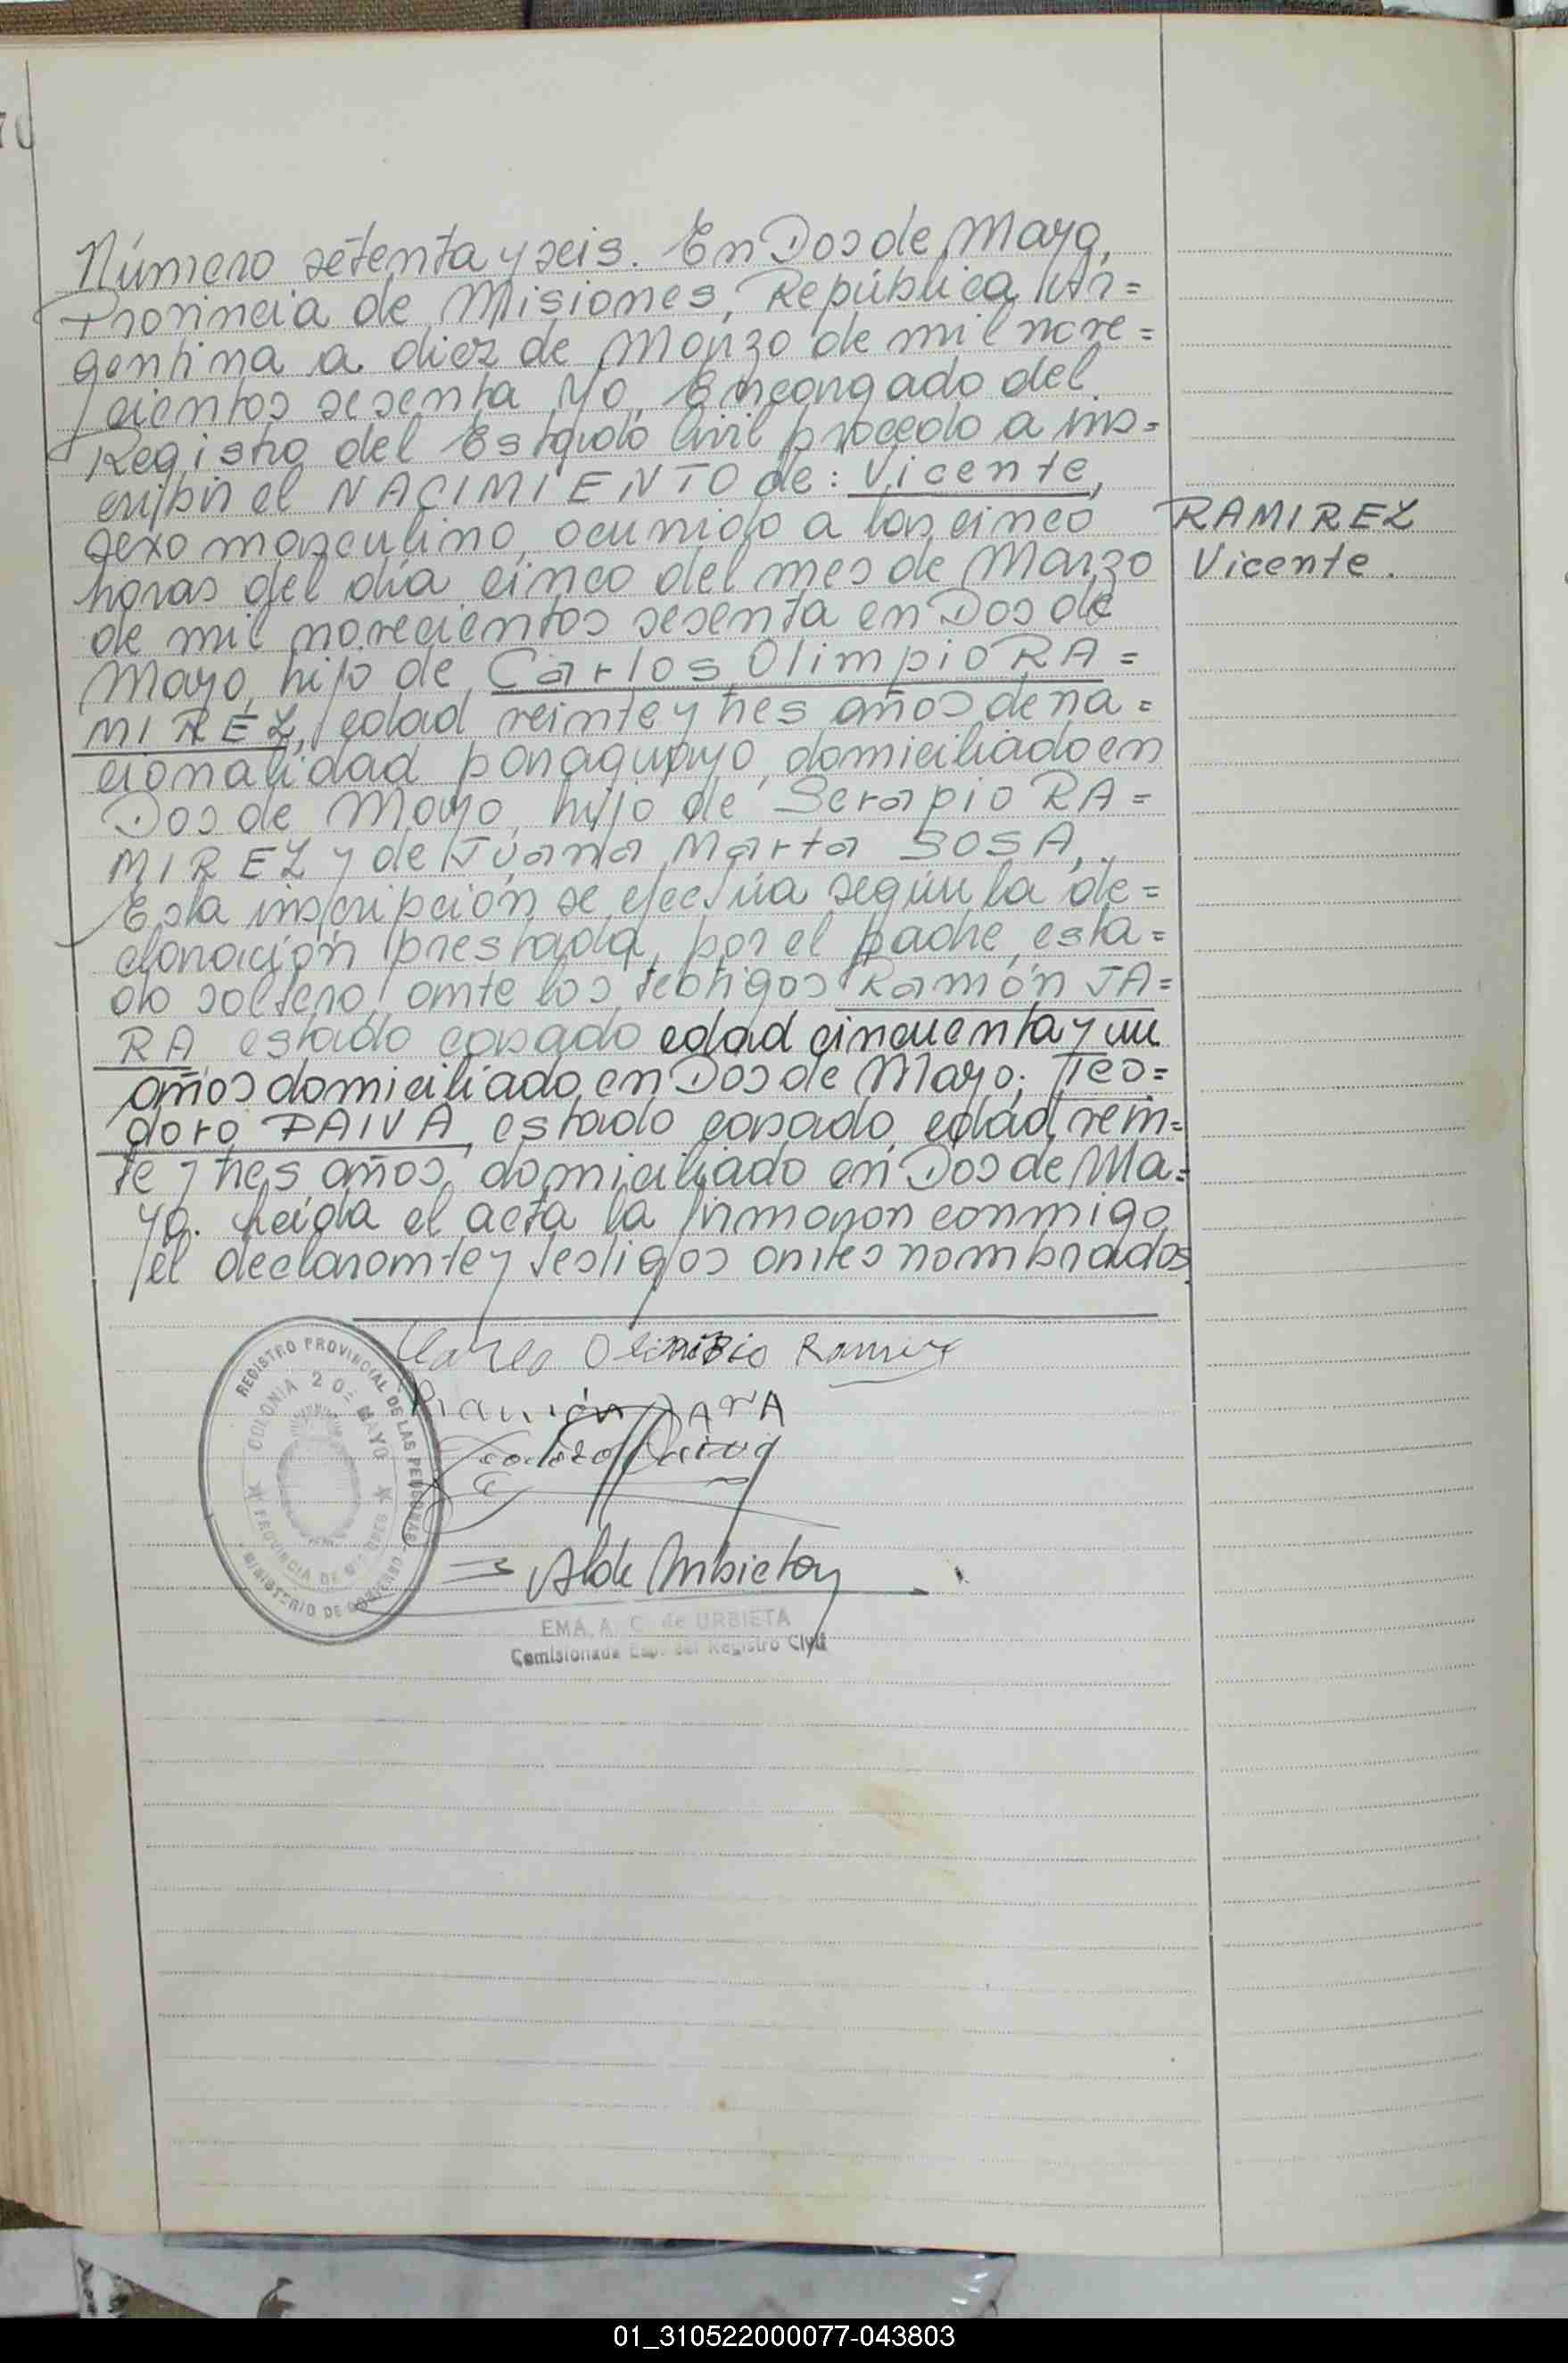 Número setenta y seis. En Dos de Mayo,
Provincia de Misiones, República Ar=
gentina a diez de Marzo de mil nove=
cientos sesenta Yo, Encargado del
Registro del Estado Civil procedo a ins=
cribir el NACIMIENTO de: Vicente,
sexo masculino, ocurrido a las cinco
horas del día cinco del mes de Marzo
de mil novecientos sesenta en Dos de
Mayo, hijo de Carlos Olimpio RA=
MIREZ, edad veinte y tres años de na=
cionalidad paraguayo, domiciliado en
Dos de Mayo, hijo de Serapio RA=
MIREZ y de Juana Marta SOSA,
Esta inscripción se efectúa según la de=
claración prestada, por el padre, esta=
do soltero, ante los testigos Ramón JA=
RA estado casado edad cincuenta y un
años domiciliado en Dos de Mayo; Teo=
doro PAIVA, estado casado, edad vein=
te y tres años, domiciliado en Dos de Ma=
yo. Leída el acta la firmaron conmigo
el declarante y testigos antes nombrados
RAMIREZ
Vicente.
Carlos Olimpio Ramirez
Ramón JArA
Teodoro Paiva
REGISTRO PROVINCIAL DE LAS PERSONAS
COLONIA 2 DE MAYO
PROVINCIA DE MISIONES
MINISTERIO DE GOBIERNO
EMA A. C. de URBIETA
Comisionada Esp. del Registro Civil
01_310522000077-043803